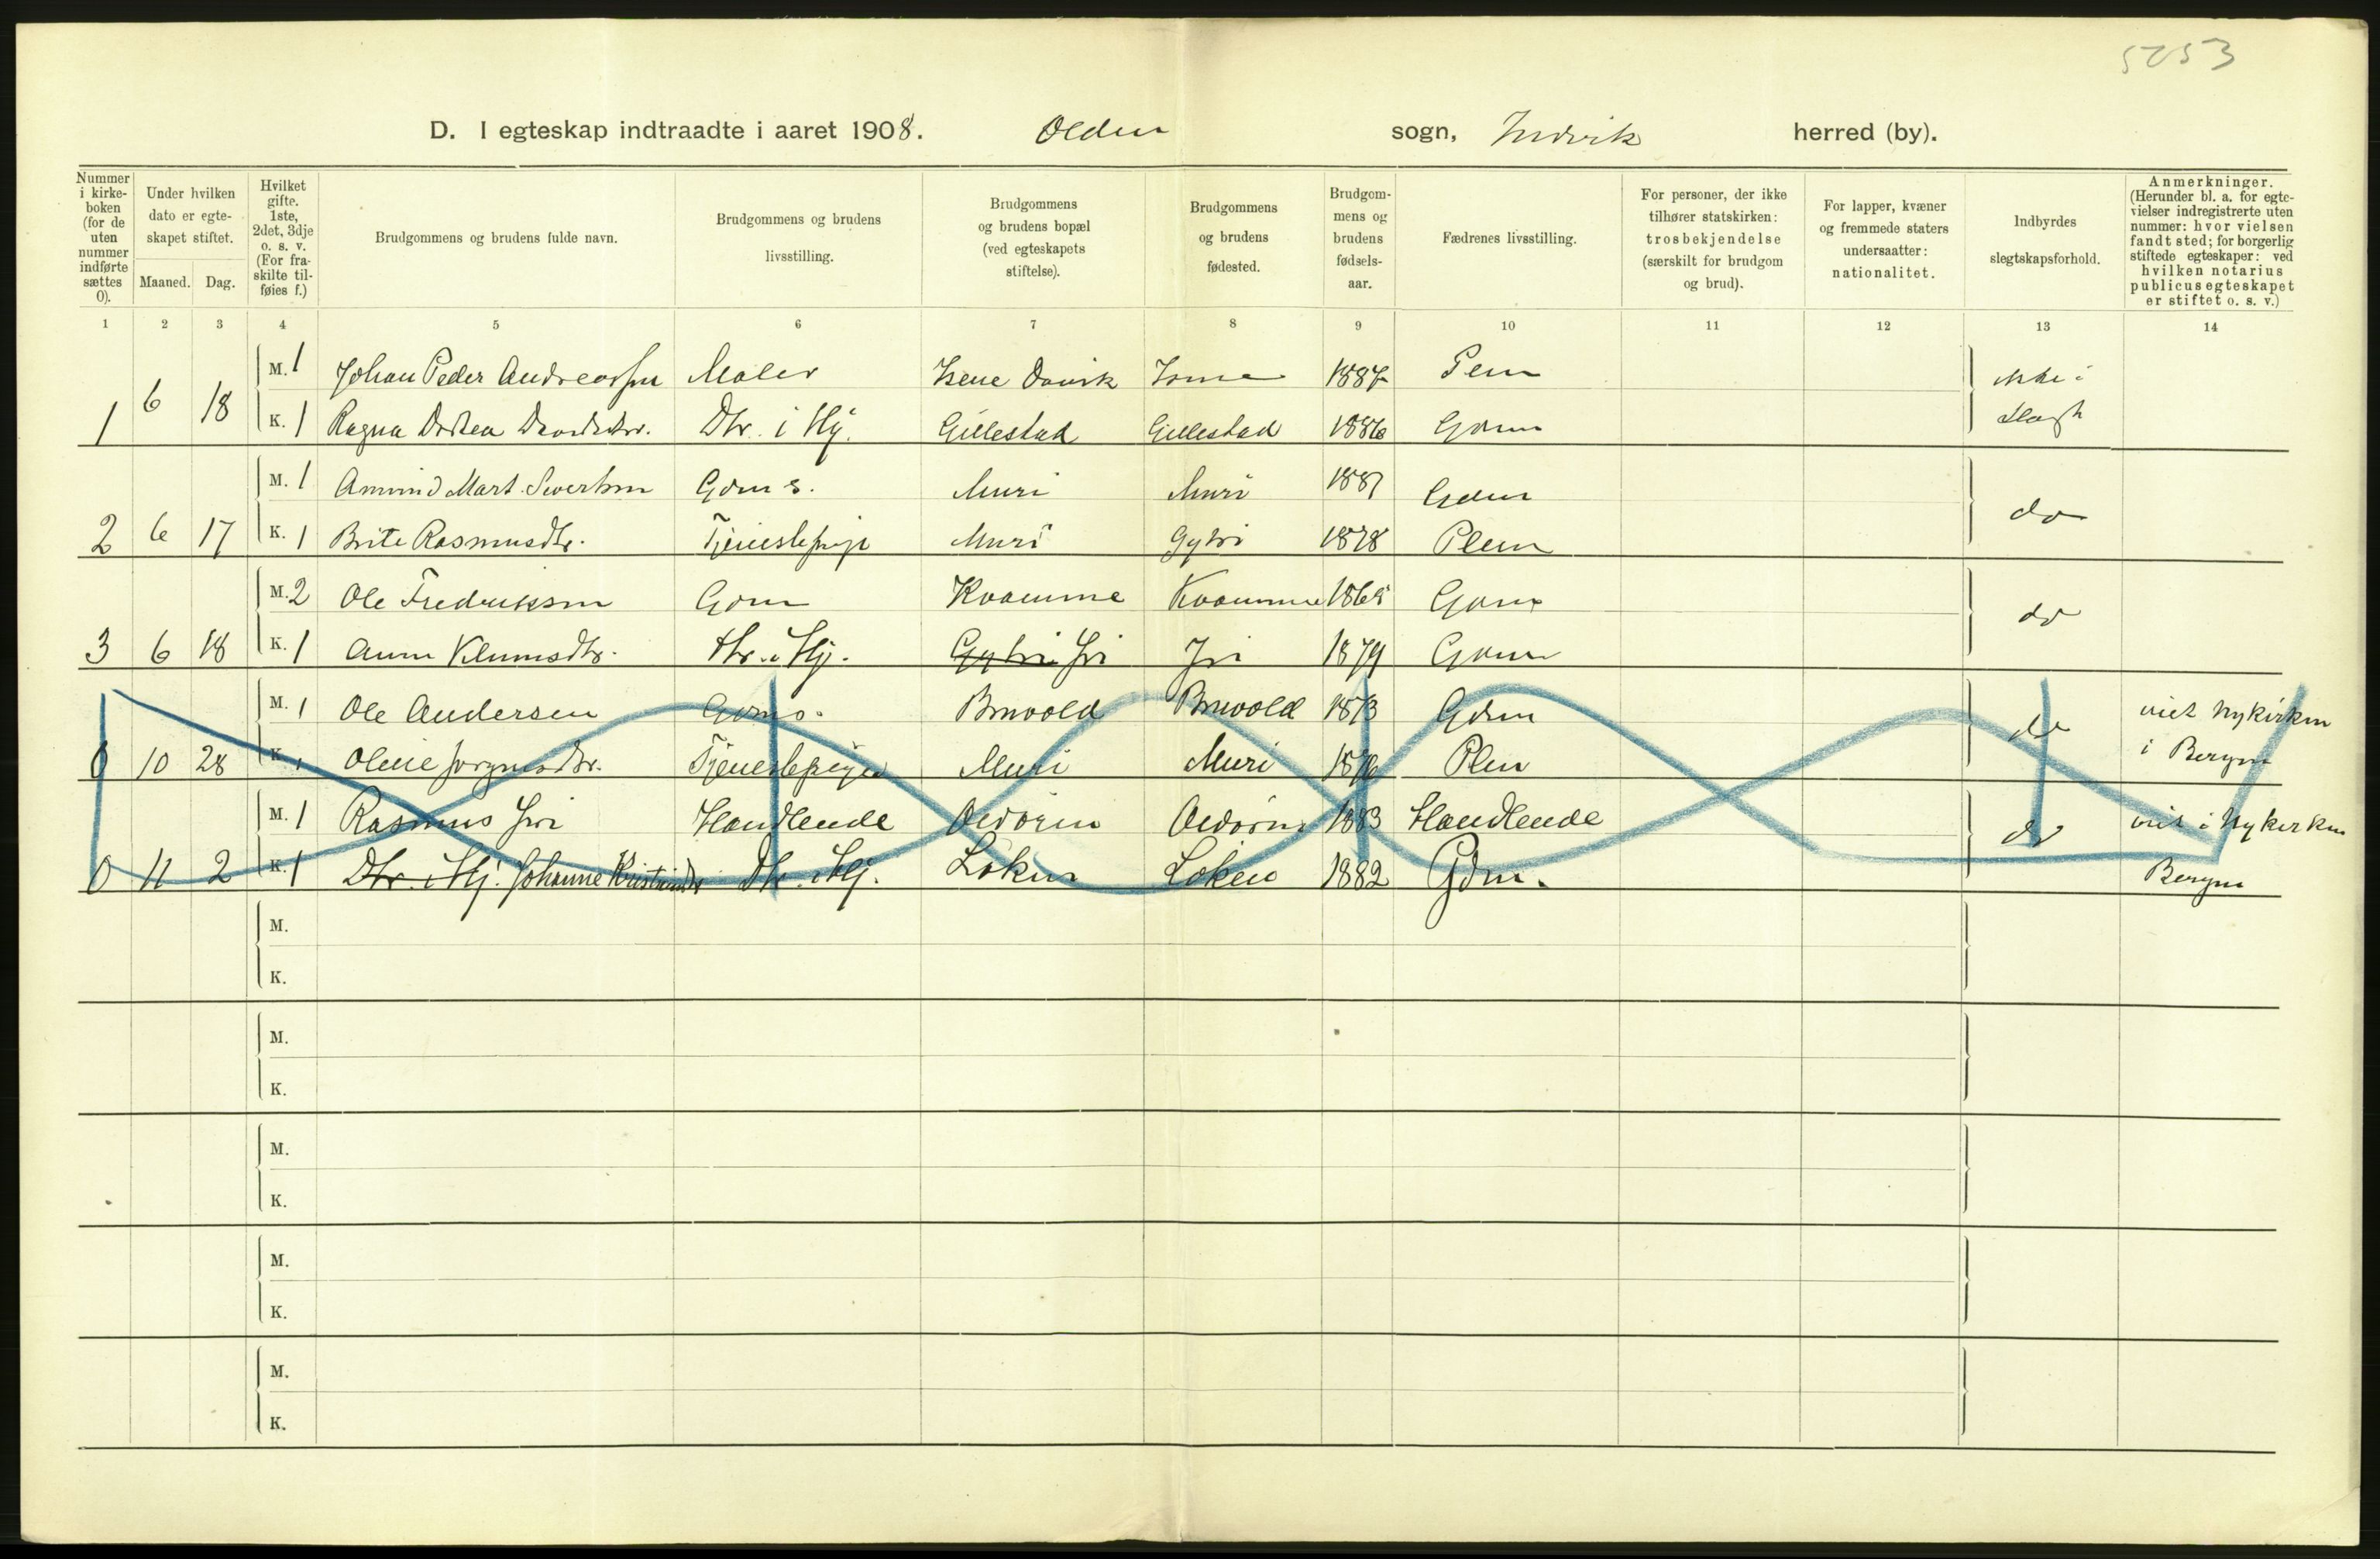 5253
D. I egteskap indtraadte i aaret 1908. Olden sogn, Indvik herred (by).
Nummer i kirke-boken (for de uten nummer indførte sættes 0).
Under hvilken dato er egte-skapet stiftet.
Maaned. Dag.
Hvilket gifte. 1ste, 2det, 3dje o. s. v. (For fra-skilte til-føies f.)
Brudgommens og brudens fulde navn.
Brudgommens og brudens livsstilling.
Brudgommens og brudens bopæl (ved egteskapets stiftelse).
Brudgommens og brudens fødested.
Brudgom-mens og brudens fødsels-aar.
Fædrenes livsstilling.
For personer, der ikke tilhører statskirken: trosbekjendelse (særskilt for brudgom og brud).
For lapper, kvæner og fremmede staters undersaatter: nationalitet.
Indbyrdes slegtskapsforhold.
Anmerkninger. (Herunder bl. a. for egte-vielser indregistrerte uten nummer: hvor vielsen fandt sted; for borgerlig stiftede egteskaper: ved hvilken notarius publicus egteskapet er stiftet o. s. v.)
1 2 3 4 5 6 7 8 9 10 11 12 13 14
M. 1 Johan Peder Andreassen Maler Isene Davik Isene 1887 Pem ikke i
1 6 18 K. 1 Ragna Dortea Davidsdtr. Dtr. i Hj. Gillestad Gillestad 1886 Gdm Slagt
M. 1 Amund Mart. Sivertsen Gdm s. Muri Muri 1881 Gdm
2 6 17 K. 1 Brite Rasmusdtr. Tjenestepige Muri Gytri 1878 Plem do
M. 2 Ole Fredriksen Gdm Kvamme Kvamme 1865 Gdm
3 6 18 K. 1 Anne Klumsdtr. Dtr. i Hj. Gytri Iri Iri 1879 Gdm do
M. 1 Ole Andersen Gdms. Bruvold Bruvold 1873 Gdm do viet Nykirken
0 10 28 K. 1 Oline Jørgensdtr. Tjenestepige Muri Muri 1876 Plem i Bergen
M. 1 Rasmus Iri Handlende Oldøren Oldøren 1883 Handlende do viet i Nykirken
0 11 2 K. 1 Dtr. i Hj. Johanne Kristiansdtr Dtr. i Hj. Løken Løken 1882 Gdm. Bergen
M.
K.
M.
K.
M.
K.
M.
K.
M.
K.